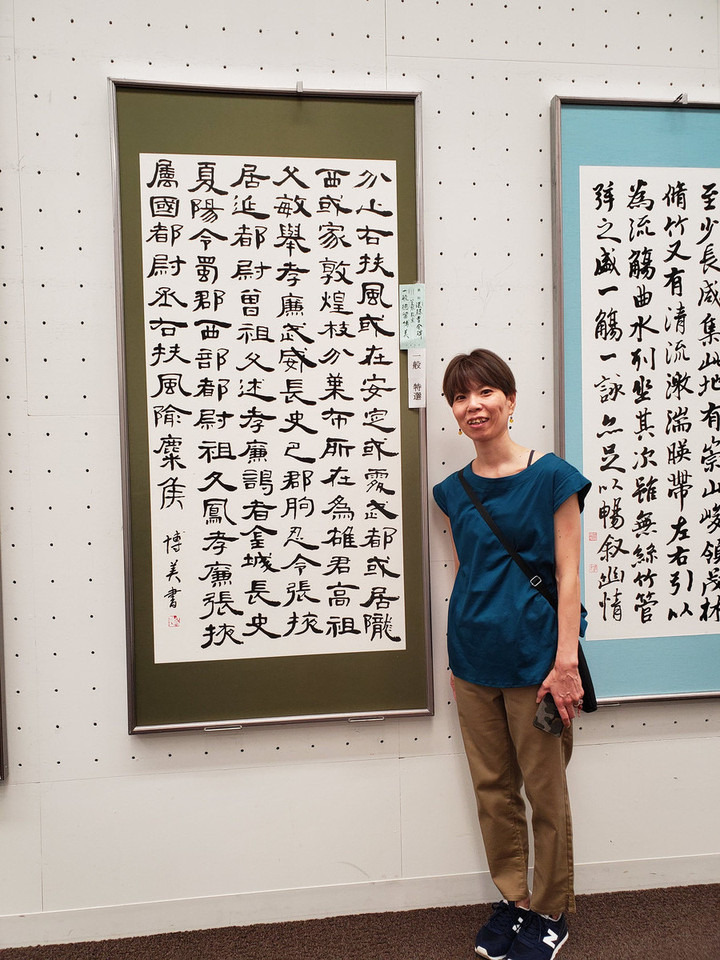 分止右扶風或在安定或處武都或居隴
西或家敦煌枝分葉布所在為雄君高祖
父敏舉孝廉武威長史巴郡朐忍令張掖
居延都尉曾祖父述孝廉謁者金城長史
夏陽令蜀郡西部都尉祖父鳳孝廉張掖
屬國都尉丞右扶風隃麋侯
博美書
一般 特選
至少長咸集此地有崇山峻領茂林
脩竹又有清流激湍暎帶左右引以
為流觴曲水列坐其次雖無絲竹管
弦之盛一觴一詠亦足以暢敘幽情
N